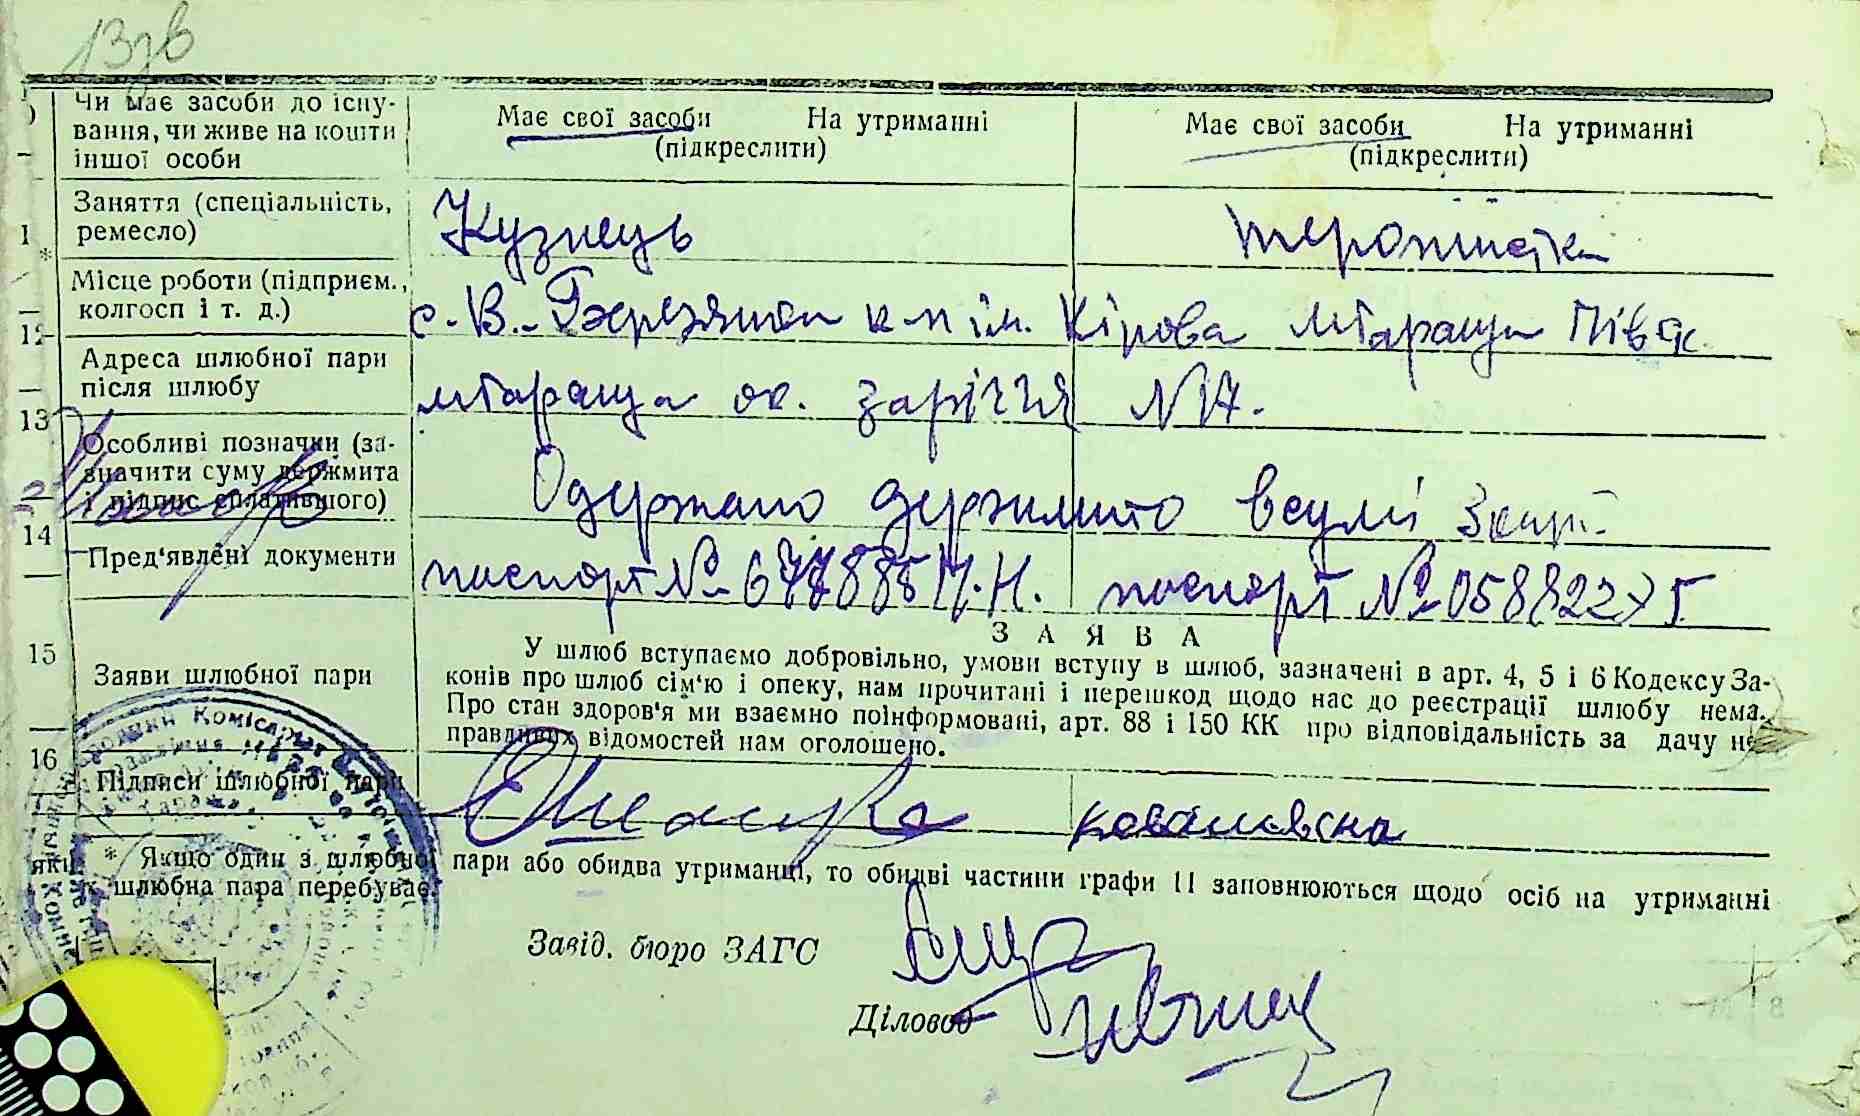 13зв
Чи має засоби до існу-
вання, чи живе на кошти
іншої особи
Має свої засоби На утриманні
(підкреслити)
Має свої засоби На утриманні
(підкреслити)
11 Заняття (спеціальність,
ремесло)
Кузнець
*
Місце роботи (підприєм.,
колгосп і т. д.)
с. В.-Березянка к-п ім. Кірова мТараща
12
Адреса шлюбної пари
після шлюбу
мТараща ок. Заріччя №17.
13
Особливі позначки (за-
значити суму держмита
і підпис сплатившого)
Одержано держмито в сумі 3 крб.
14
Пред'явлені документи
паспорт № М.Н. паспорт №
ЗАЯВА
15
Заяви шлюбної пари
У шлюб вступаємо добровільно, умови вступу в шлюб, зазначені в арт. 4, 5 і 6 Кодексу За-
конів про шлюб сім'ю і опеку, нам прочитані і перешкод щодо нас до реєстрації шлюбу нема.
Про стан здоров'я ми взаємно поінформовані, арт. 88 і 150 КК про відповідальність за дачу не-
правдивих відомостей нам оголошено.
16
Підписи шлюбної пари
ковалевска
* Якщо один з шлюбної пари або обидва утриманці, то обидві частини графи 11 заповнюються щодо осіб на утриманні
яких шлюбна пара перебуває.
Завід. бюро ЗАГС
Діловод